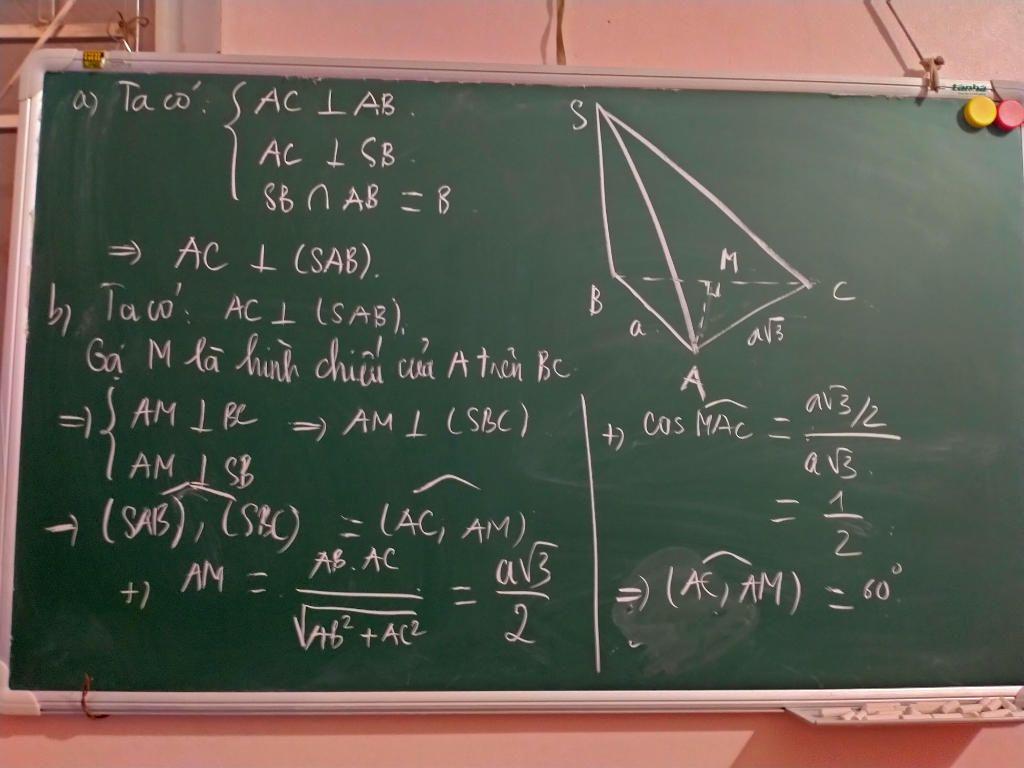 a) Ta có: { AC ⊥ AB.
AC ⊥ SB.
SB ∩ AB = B
=> AC ⊥ (SAB).
b) Ta có: AC ⊥ (SAB).
Gọi M là hình chiếu của A trên BC.
=> { AM ⊥ BC => AM ⊥ (SBC)
AM ⊥ SB
→ (SAB), (SBC) = (AC, AM)
+) AM = AB.AC / √AB² + AC² = a√3 / 2
tanha
S
M
B
C
a
a√3
A
+) cos MAC = a√3/2 / a√3.
= 1/2
=> (AC, AM) = 60°